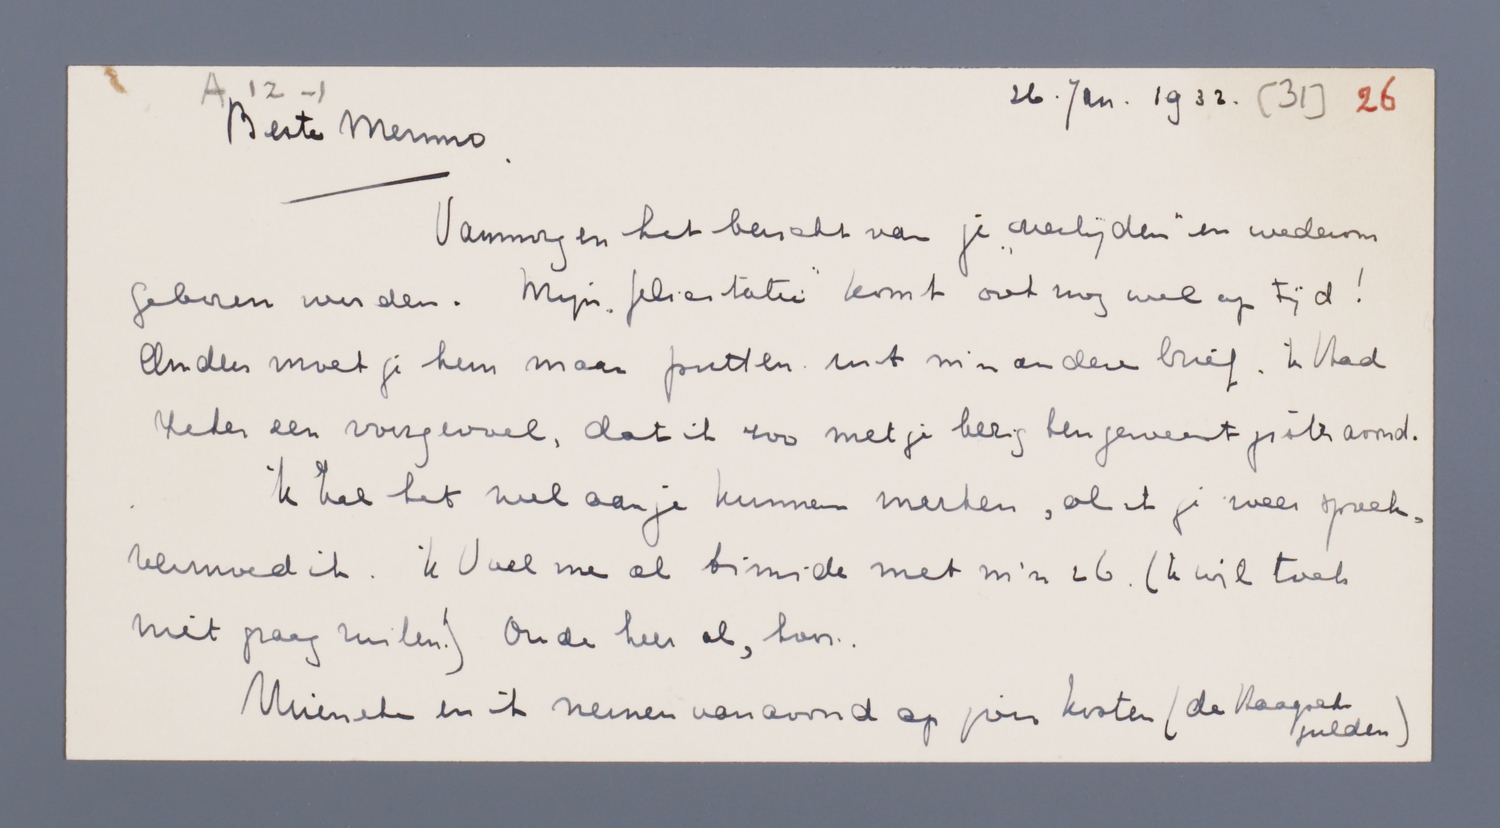 A 12-1
26. Jan. 1932. [31] 26
Beste Menno.
Vanmorgen het bericht van je „overlijden" en wederom
geboren worden. Mijn „felicitatie" komt ook nog wel op tijd!
Anders moet je hem maar putten uit m'n andere brief. Ik had
zeker een voorgevoel, dat ik zoo met je bezig ben geweest gisteravond.
Ik zal het wel aan je kunnen merken, als ik je weer spreek,
vermoed ik. Ik voel me al timide met m'n 26. (Ik wil toch
niet graag ruilen!) Oude heer al, hoor.
Mieneke en ik nemen vanavond op jouw kosten (de Haagsche
gulden)